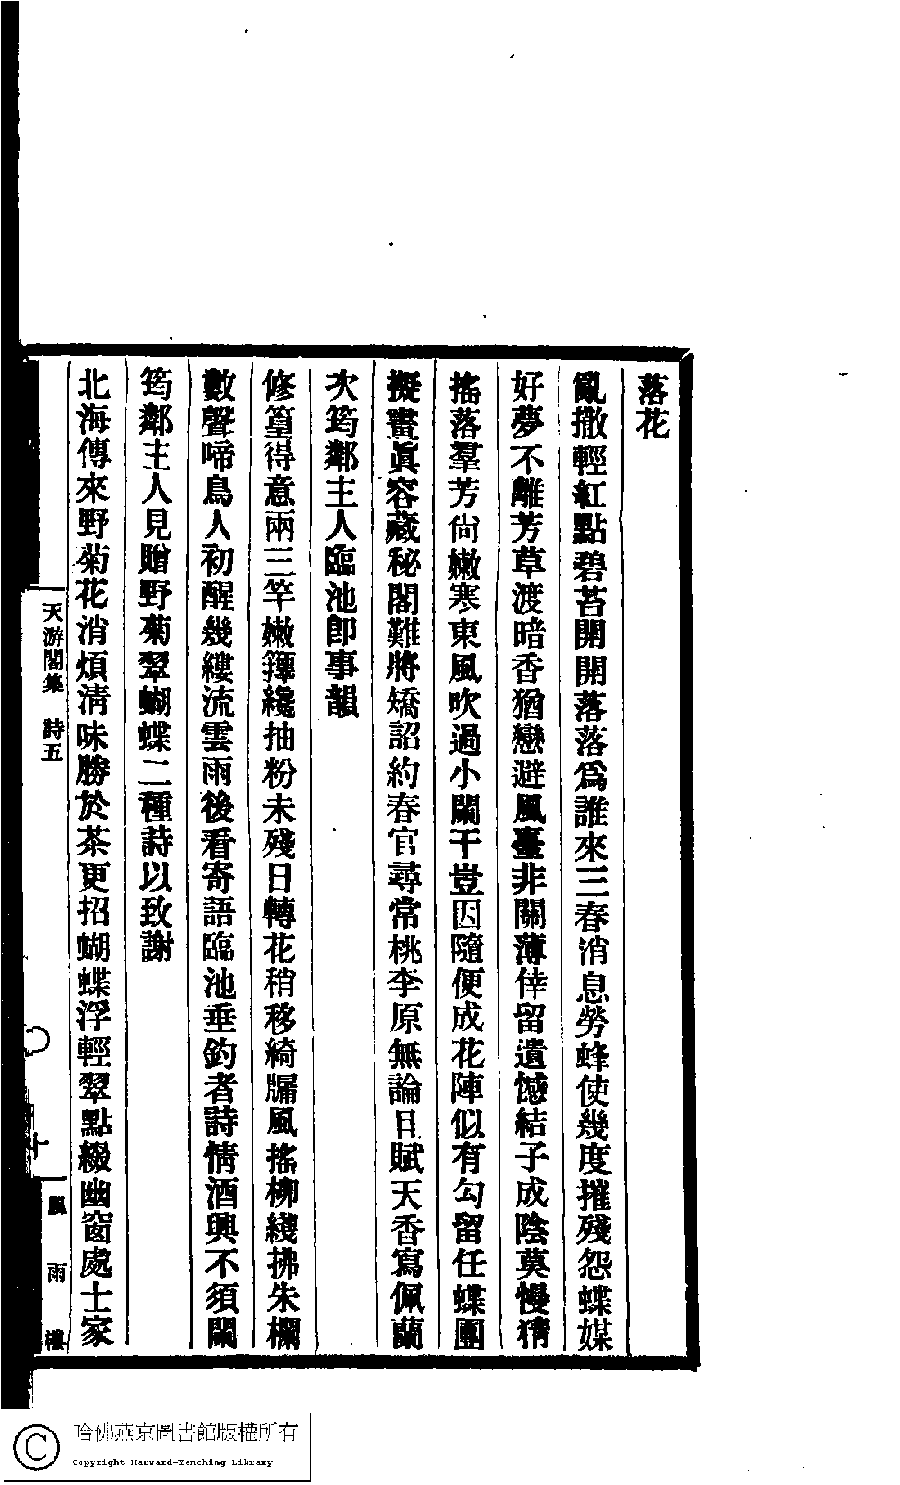 落花
亂撒輕紅點碧苔開開落落爲誰來三春消息勞蜂使幾度摧殘怨蝶媒
好夢不離芳草渡暗香猶戀避風臺非關薄倖留遺憾結子成陰莫慢猜
搖落羣芳尙嫩寒東風吹過小闌干豈因隨便成花陣似有勾留任蝶團
擬畫眞容藏秘閣難將矯詔約春官尋常桃李原無論日賦天香寫佩蘭
次筠鄰主人臨池卽事韻
修篁得意兩三竿嫩籜纔抽粉未殘日轉花稍移綺牖風搖柳綫拂朱欄
數聲啼鳥人初醒幾縷流雲雨後看寄語臨池垂釣者詩情酒興不須闌
筠鄰主人見贈野菊翠蝴蝶二種詩以致謝
北海傳來野菊花消煩淸味勝於茶更招蝴蝶浮輕翠點綴幽窗處士家
天游閣集 詩五
十
風雨樓
哈佛燕京圖書館版權所有
Copyright Harvard-Yenching Library